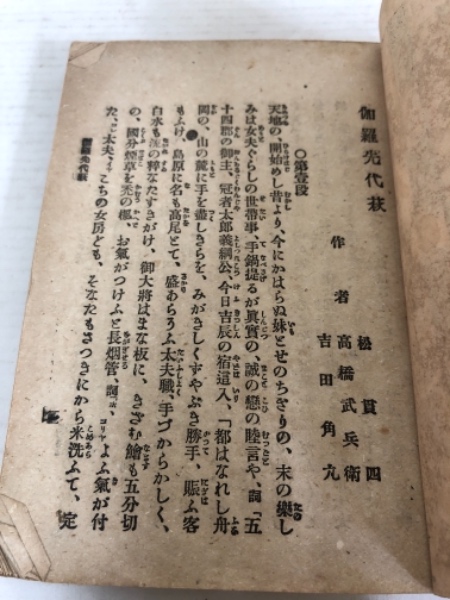 伽羅先代萩
作者
松貫四
高橋武兵衛
吉田角九
〇第壹段
天地の、開始めし昔より、今にかはらぬ妹とせのちぎりの、末の樂し
みは女夫ぐらしの世帶事、手鍋提るが眞實の、誠の戀の睦言や、詞「五
十四郡の御主、冠者太郎義綱公、今日吉辰の宿這入、「都はなれし舟
岡の、山の麓に手を盡しきらを、みがきしくすやぶき勝手、賑ふ客
もふけ、島原に名も高尾とて、盛あらろふ太夫職、手づからかしく、
白水も注の粹なたすきがけ、御大將はまな板に、きざむ鱠も五分切
の、國分煙草を禿の樒、お氣がつけふと長烟管、詞よふ氣が付
た、太夫、こちの女房ども、そなたもさつきにから米洗ふて、定
先代萩